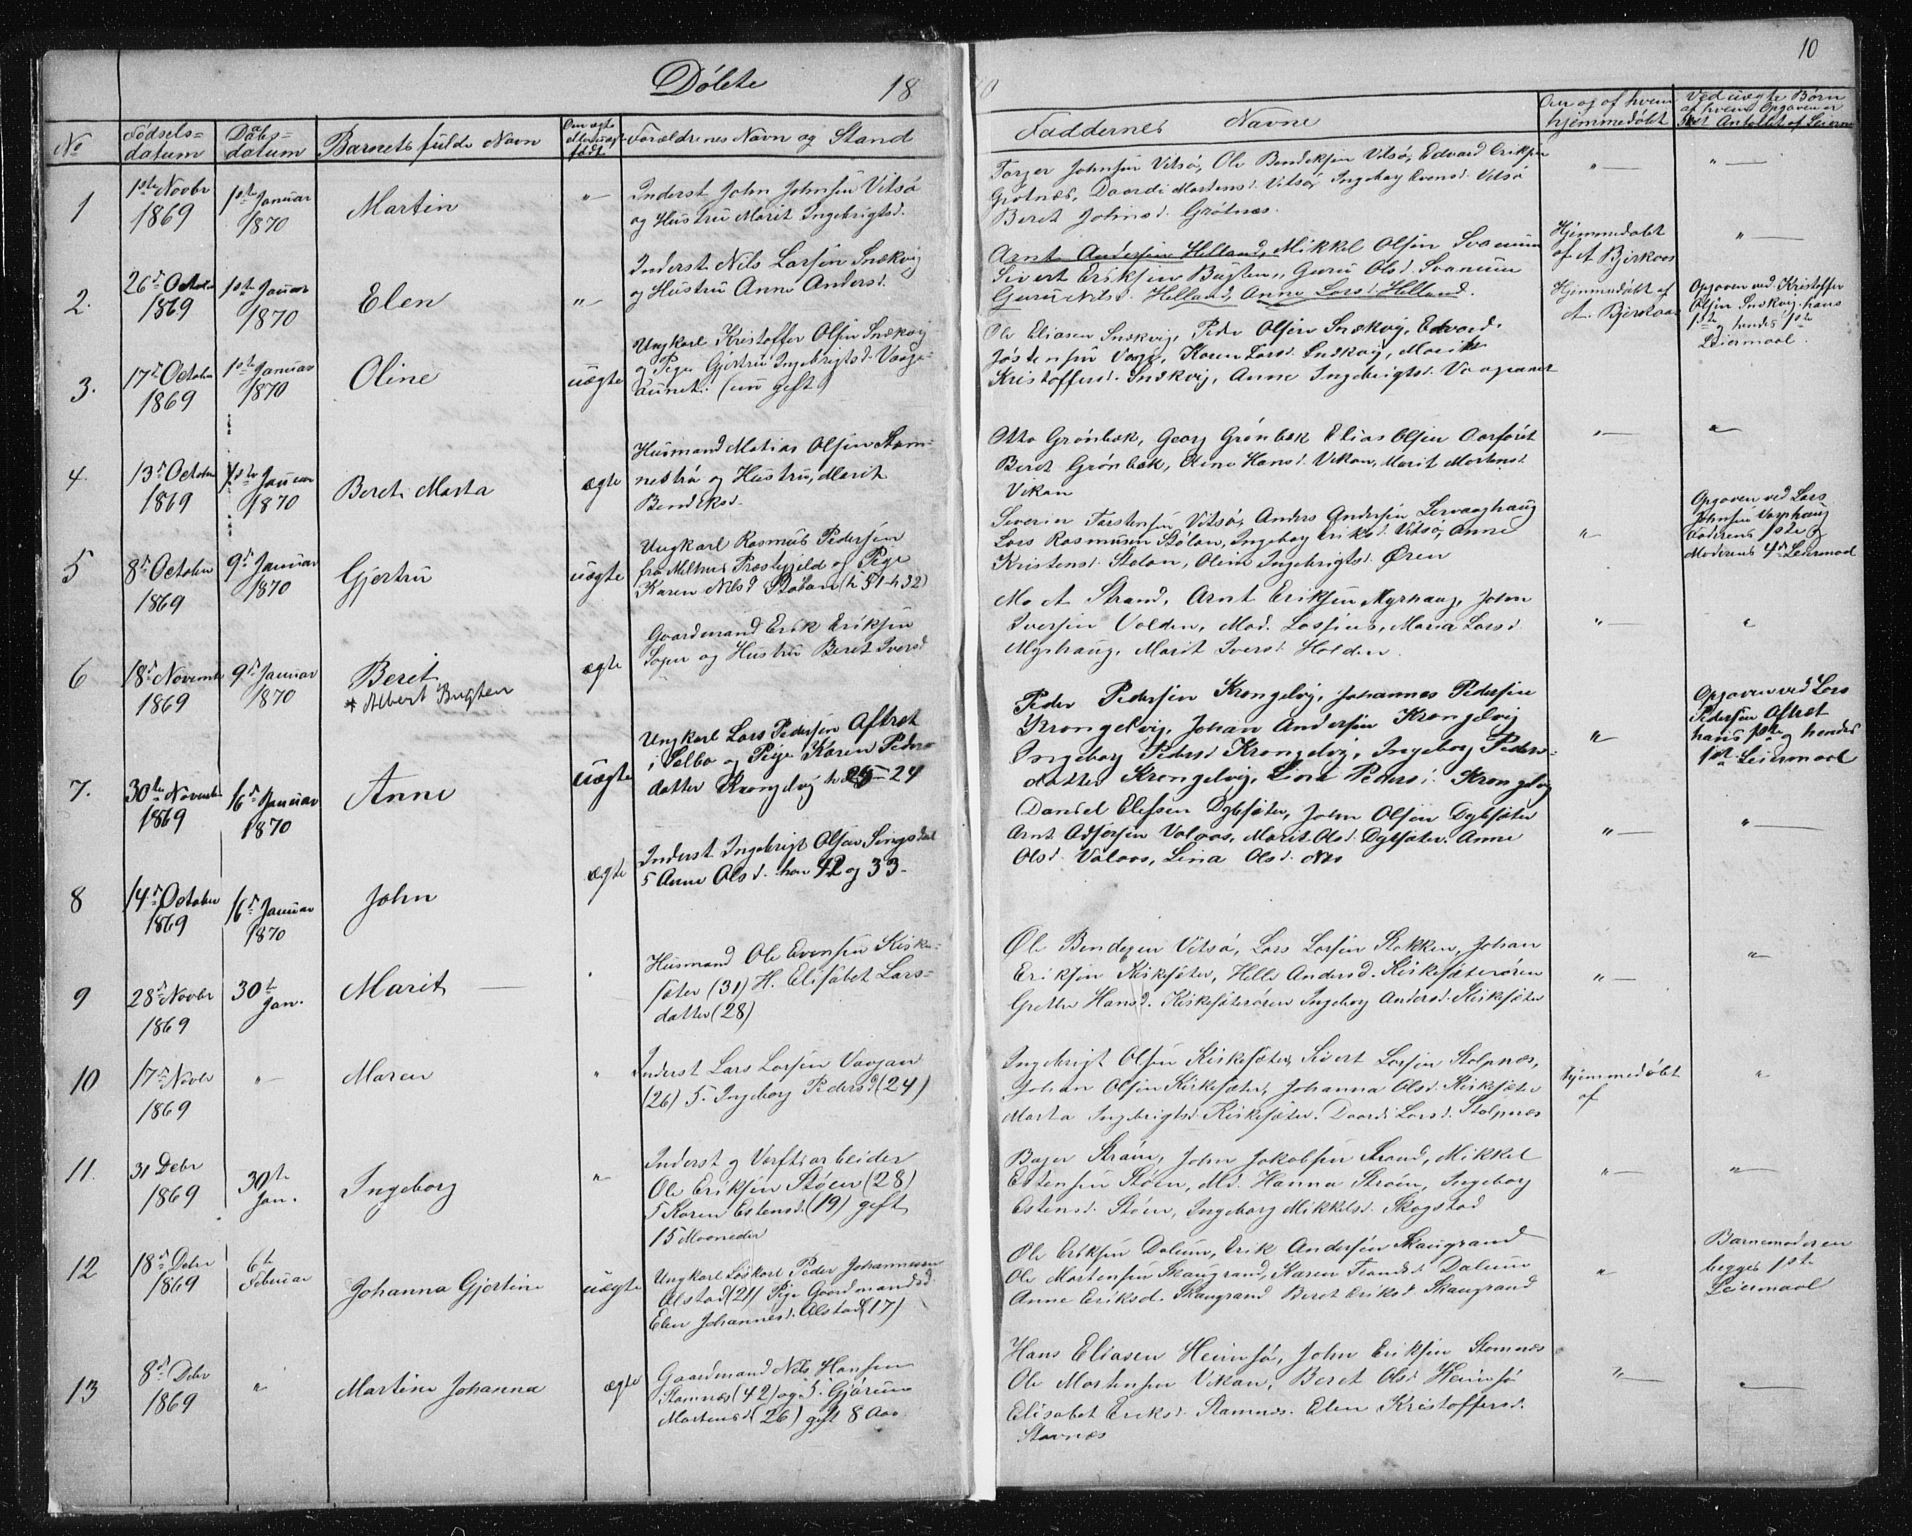 Døbte 18 70
10
No
Fødsels-
datum
Døbs-
datum
Barnets fulde Navn
Om ægte
eller uægte
født
Forældrenes Navn og Stand
Faddernes Navne
Om og af hvem
hjemmedøbt
Ved uægte Børn
af hvem Opgaven er
Antallet af Leierm
1
1ste Novbr
1869
1ste Januar
1870
Martin
"
Inderst John Johnsen Vitsø
og Hustru Marit Ingebrigtsd.
Torger Johnsen Vitsø, Ole Bendiksen Vitsø, Edvard Eriksen
Grøtnæs, Daardi Mortensd. Vitsø, Ingeborg Evensd. Vitsø
Beret Johnsd. Grøtnæs.
" —
" —
2.
26de October
1869
1ste Januar
1870
Elen
"
Inderst Nils Larsen Snækvig
og Hustru Anne Andersd.
Arnt Andersen Helland, Mikkel Olsen Svanum
Sivert Eriksen Bugten, Guru Olsd. Svanum
Guru Nilsd. Helland, Anne Larsd. Helland.
Hjemmedøbt
af A Bjerkaas
" —
3.
17de October
1869
1ste Januar
1870
Oline
uægte
Ungkarl Kristoffer Olsen Snækvig
og Pige Gjertru Ingebrigtsd. Vaage-
aunet. (un gift)
Ole Eliasen Snekvig, Peder Olsen Snækvig, Edvard
Jostensen Vaage, Karen Larsd. Snekvig, Marit
Kristoffersd. Snekvig, Anne Ingebrigtsd. Vaageaunet
Hjemmedøbt af
A. Bjerkaas
Opgaven ved Kristoffer
Olsen Snekvig, hans
1ste og hendes 1ste
Leiermaal.
4.
13de October
1869
1ste Januar
1870
Beret Marta
ægte
Husmand Matias Olsen Stam-
nestrø og Hustru Marit
Bendiksd.
Otto Grønbæk, Georg Grønbæk Elias Olsen Aarføret
Beret Grønbæk, Eline Hansd. Vikan, Marit Mortensd
Vikan
" —
"
5
8de October
1869
9de Januar
1870
Gjertru
uægte
Ungkarl Rasmus Pedersen
fra Melhus Præstegjeld og Pige
Karen Nilsd Stølan (h 51-h 32)
Severin Torstensen Vitsø, Anders Andersen Lervaaghaug
Lars Rasmusen Stølan, Ingeborg Eriksd. Vitsø, Anne
Kristensd. Stølan, Oline Ingebrigtsd. Øren
"
Opgaven ved Lars
Johnsen Vorphaug
Faderens 1ste og
Moderens 4de Leiermaal
6
18de Novembr
1869
9de Januar
1870
Beret
* Albert Bugten
ægte
Gaardmand Erik Eriksen
Soper og Hustru Beret Iversd
Mo A Strand, Arnt Eriksen Myrhaug, John
Iversen Volden, Mad. Lossius, Maria Larsd.
Myrhaug, Marit Iversd. Holden.
" —
"
7.
30te Novembr
1869
16de Januar
1870
Anne
uægte
Ungkarl Lars Pedersen Aftret
i Selbo og Pige Karen Peders-
datter Krongelvig h 25-24
Peder Pedersen Krongelvig, Johannes Pedersen
Krongelvig, Johan Andersen Krongelvig
Ingeborg Pedersd Krongelvig, Ingeborg Peders-
datter Krongelvig, Lina Pedersd. Krongelvig
"
Opgaven ved Lars
Pedersen Aftret
hans 1ste og hendes
1ste Leiermaal
8
14de October
1869
16de Januar
1870
John
ægte
Inderst Ingebrigt Olsen Singsdal
5 Anne Olsd. han 42 og 33.
Daniel Elefsen Dybsæter, John Olsen Dybsæter
Arnt Adsersen Valaas, Marit Olsd. Dybsæter. Anne
Olsd. Valaas, Lina Olsd. Næs
" —
" —
9
28de Novbr
1869
30te
Jan.
Marit —
Husmand Ole Evensen Kirke-
sæter (31) H. Elisabet Lars-
datter (28)
Ole Bendixen Vitsø, Lars Larsen Stokken, Johan
Eriksen Kirkesæter, Helle Andersd. Kirkesæterøren
Grethe Hansd. Kirkesæterøren Ingeborg Andersd. Kirkesæter
" —
"
10
17de Novbr
1869
" —
Maren
"
Inderst Lars Larsen Vaagan
(26) 5. Ingeborg Pedersd (24)
Ingebrigt Olsen Kirkesæter, Sivert Larsen Stolpnæs,
Johan Olsen Kirkesæter, Johanna Olsd. Kirkesæter
Marta Ingebrigtsd Kirkesæter. Daardi Larsd. Stolpnæs
Hjemmedøbt
af
"
11.
31 Debr
1869
30te
Jan.
Ingeborg
"
Inderst og Verftsarbeider
Ole Eriksen Støen (28)
5 Karen Estensd. (19) gift
15 Maaneder
Bager Strøm, John Jakobsen Strand, Mikkel
Estensen Støen, Md. Hanna Strøm, Ingeborg
Estensd. Støen, Ingeborg Mikkelsd. Skogstad
" —
" —
12
18de Debr
1869
6te
Februar
Johanna Gjertine
uægte
Ungkarl Løskarl Peder Johannesen
Alstad (21) Pige Gaardmandsd.
Elen Johannesd. Alstad (17)
Ole Eriksen Dalum, Erik Andersen Skaugrand
Ole Mortensen Skaugrand, Karen Trondsd. Dalum
Anne Eriksd. Skaugrand Beret Eriksd. Skaugrand
"
Barnemoderen
begges 1ste
Leiermaal
13
8de Debr
1869
"
Martine Johanna
ægte
Gaardmand Nils Hansen
Stamnes (42) og 5. Gjørun
Mortensd (26) gift 8 Aar.
Hans Eliasen Heimsø, John Eriksen Stamnes
Ole Mortensen Vikan, Beret Olsd Heimsø
Elisabet Eriksd. Stamnes. Elen Kristoffersd.
Stavnæs
" —
" —